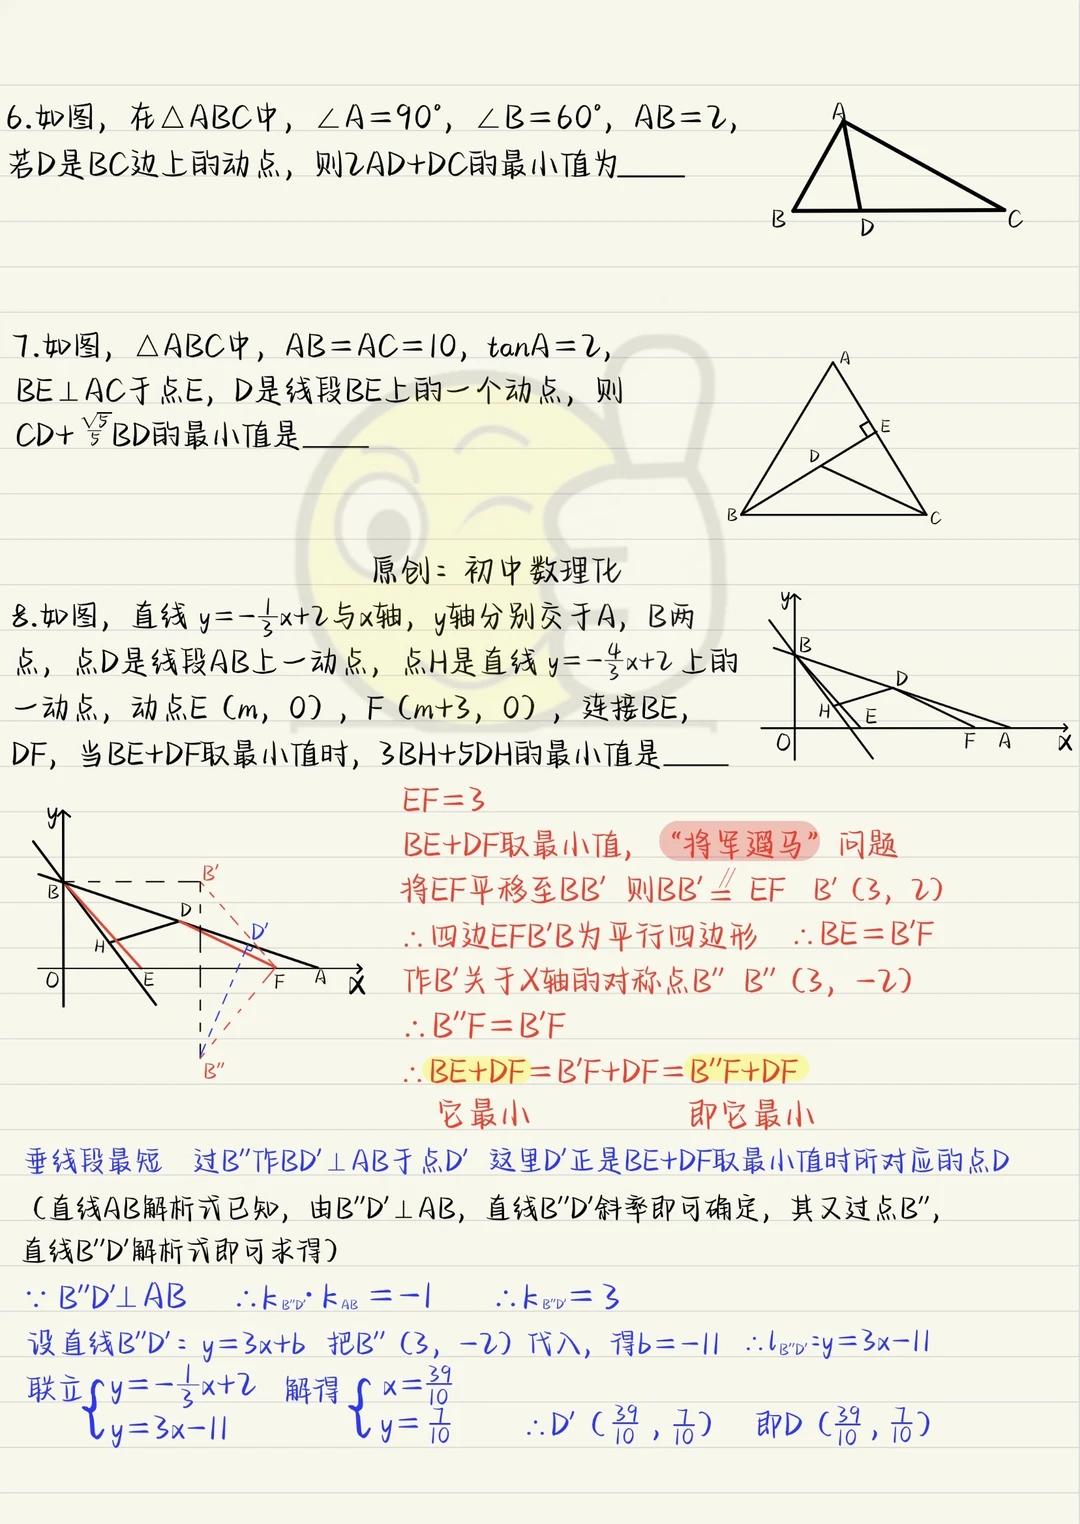 6.如图，在△ABC中，∠A=90°，∠B=60°，AB=2，
若D是BC边上的动点，则2AD+DC的最小值为____
A
B
D
C
7.如图，△ABC中，AB=AC=10，tanA=2，
BE⊥AC于点E，D是线段BE上的一个动点，则
CD+√5/5 BD的最小值是____
A
E
D
B
C
原创：初中数理化
8.如图，直线 y=-1/3x+2与x轴，y轴分别交于A，B两
点，点D是线段AB上一动点，点H是直线 y=-4/3x+2 上的
一动点，动点E（m，0），F（m+3，0），连接BE，
DF，当BE+DF取最小值时，3BH+5DH的最小值是____
y
B
D
H
E
O
F
A
x
y
B′
B
D
D′
H
O
E
F
A
x
B″
EF=3
BE+DF取最小值，“将军遛马”问题
将EF平移至BB′ 则BB′∥= EF B′（3，2）
∴四边EFB′B为平行四边形 ∴BE=B′F
作B′关于X轴的对称点B″ B″（3，-2）
∴B″F=B′F
∴BE+DF=B′F+DF=B″F+DF
它最小 即它最小
垂线段最短 过B″作BD′⊥AB于点D′ 这里D′正是BE+DF取最小值时所对应的点D
（直线AB解析式已知，由B″D′⊥AB，直线B″D′斜率即可确定，其又过点B″，
直线B″D′解析式即可求得）
∵ B″D′⊥AB ∴k B″D′·k AB =-1 ∴k B″D′=3
设直线B″D′：y=3x+b 把B″（3，-2）代入，得b=-11 ∴l B″D′:y=3x-11
联立{y=-1/3x+2 解得{x=39/10
y=3x-11 y=7/10 ∴D′（39/10，7/10） 即D（39/10，7/10）